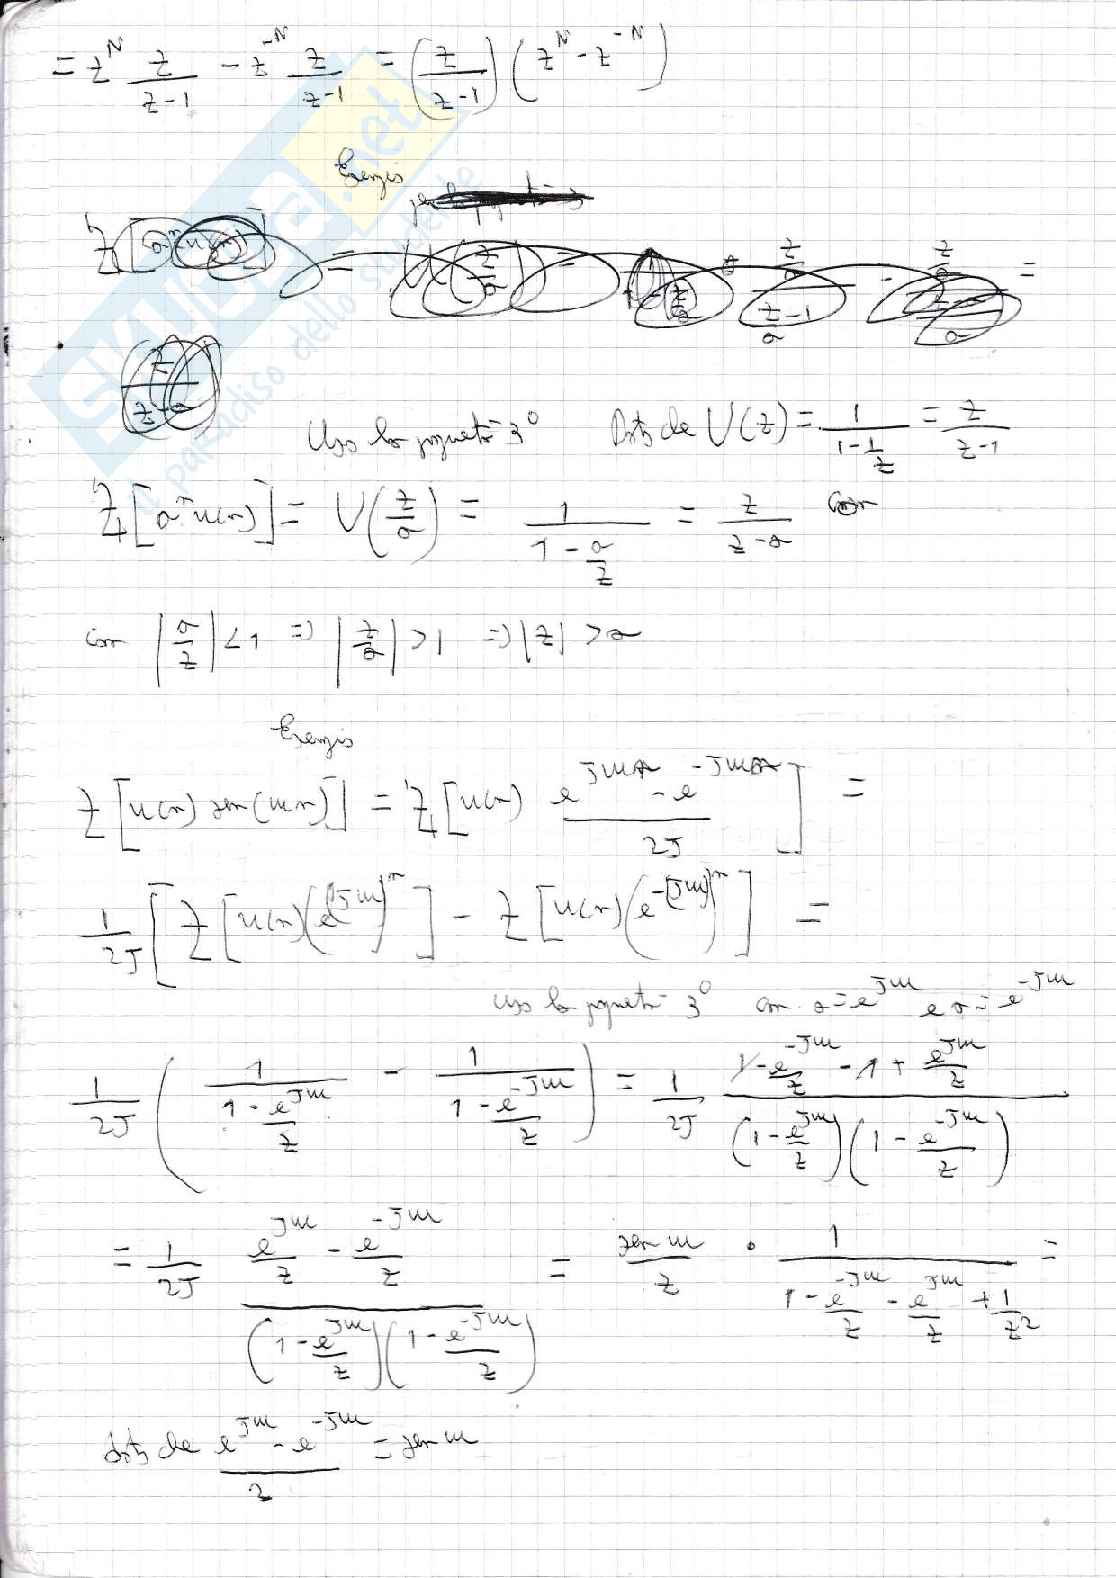 = z^N z/(z-1) - z^-N z/(z-1) = (z/(z-1)) (z^N - z^-N)
Esempio
Uso la proprietà 3° Dato che U(z) = 1/(1 - 1/z) = z/(z-1)
Z[a^n u(n)] = U(z/a) = 1/(1 - a/z) = z/(z-a) con
con |a/z| < 1 => |z/a| > 1 => |z| > a
Esempio
Z[u(n) sen(wn)] = Z[u(n) (e^jwn - e^-jwn)/2J] =
1/2J [Z[u(n)(e^jw)^n] - Z[u(n)(e^-(jw))^n]] =
uso la proprietà 3° con a = e^jw e a = e^-jw
1/2J (1/(1 - e^jw/z) - 1/(1 - e^-jw/z)) = 1/2J (1 - e^-jw/z - 1 + e^jw/z)/((1 - e^jw/z)(1 - e^-jw/z))
= 1/2J (e^jw/z - e^-jw/z)/((1 - e^jw/z)(1 - e^-jw/z)) = sen w/z · 1/(1 - e^-jw/z - e^jw/z + 1/z²) =
dato che (e^jw - e^-jw)/2 = sen w
SKUOLA.net
il paradiso dello studente